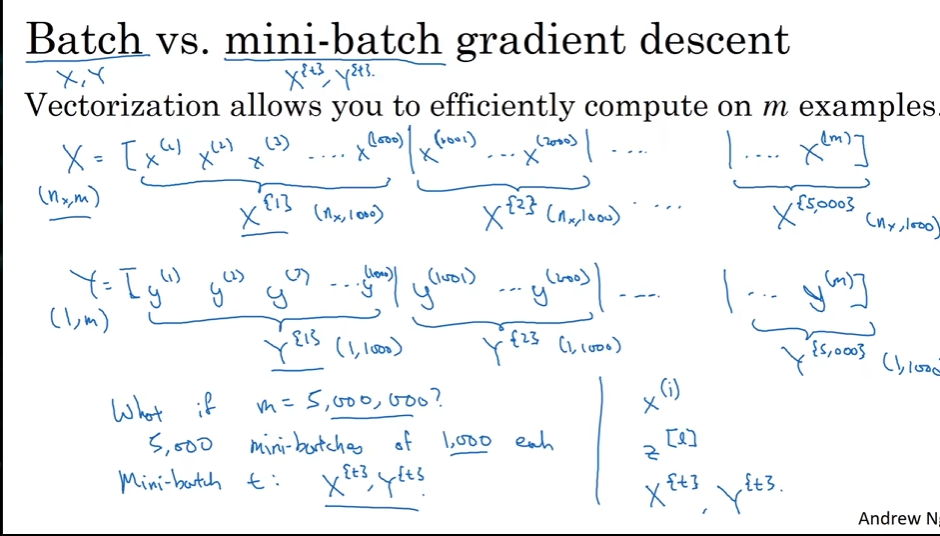 Batch vs. mini-batch gradient descent
X, Y X^{t}, Y^{t}.
Vectorization allows you to efficiently compute on m examples.
X = [x^(1) x^(2) x^(3) .... x^(1000) | x^(1001) ... x^(2000) | .... | .... x^(m)]
(n_x, m)
X^{1} (n_x, 1000) X^{2} (n_x, 1000) .... X^{5,000} (n_x, 1000)
Y = [y^(1) y^(2) y^(3) ... y^(1000) | y^(1001) ... y^(2000) | .... | ... y^(m)]
(1, m)
Y^{1} (1, 1000) Y^{2} (1, 1000) Y^{5,000} (1, 1000
What if m = 5,000,000?
5,000 mini-batches of 1,000 each
Mini-batch t: X^{t}, Y^{t}.
x^(i)
z^[l]
X^{t}, Y^{t}.
Andrew Ng